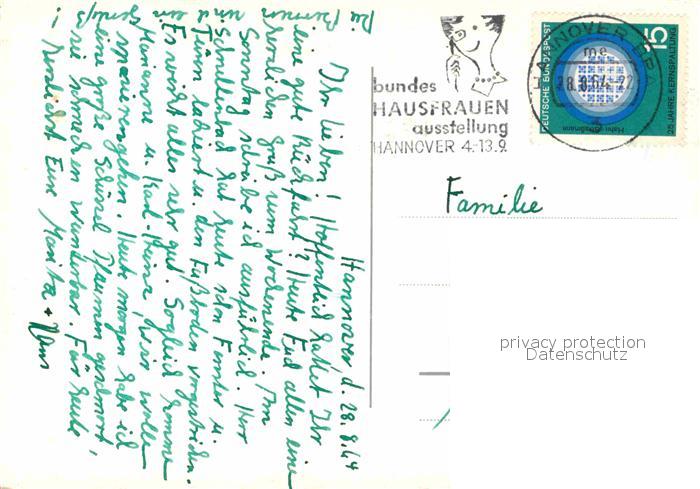 Hannover, d. 28.8.64
Ihr Lieben! Hoffentlich hattet Ihr
eine gute Rückfahrt? Heute Euch allen einen
herzlichen Gruß zum Wochenende. Am
Sonntag schreibe ich ausführlich. Herr
Schullenbad hat heute schon Fenster u.
Türen lackiert u. den Fußboden vorgestrichen.
Es wirkt alles sehr gut. Sogleich kommen
Marianne u. Karl-Heinz, wir wollen
spazierengehen. Heute morgen habe ich
eine große Schüssel Pflaumen geschmort,
sie schmecken wunderbar. Für heute
herzlichst Eure Marita +
Die Beeren sind ein
Genuß!
bundes
HAUSFRAUEN
ausstellung
HANNOVER 4.-13.9.
HANNOVER BPA
me
28.8.64-22
DEUTSCHE BUNDESPOST
15
25 JAHRE KERNSPALTUNG
Hahn-Straßmann
Familie
privacy protection
Datenschutz